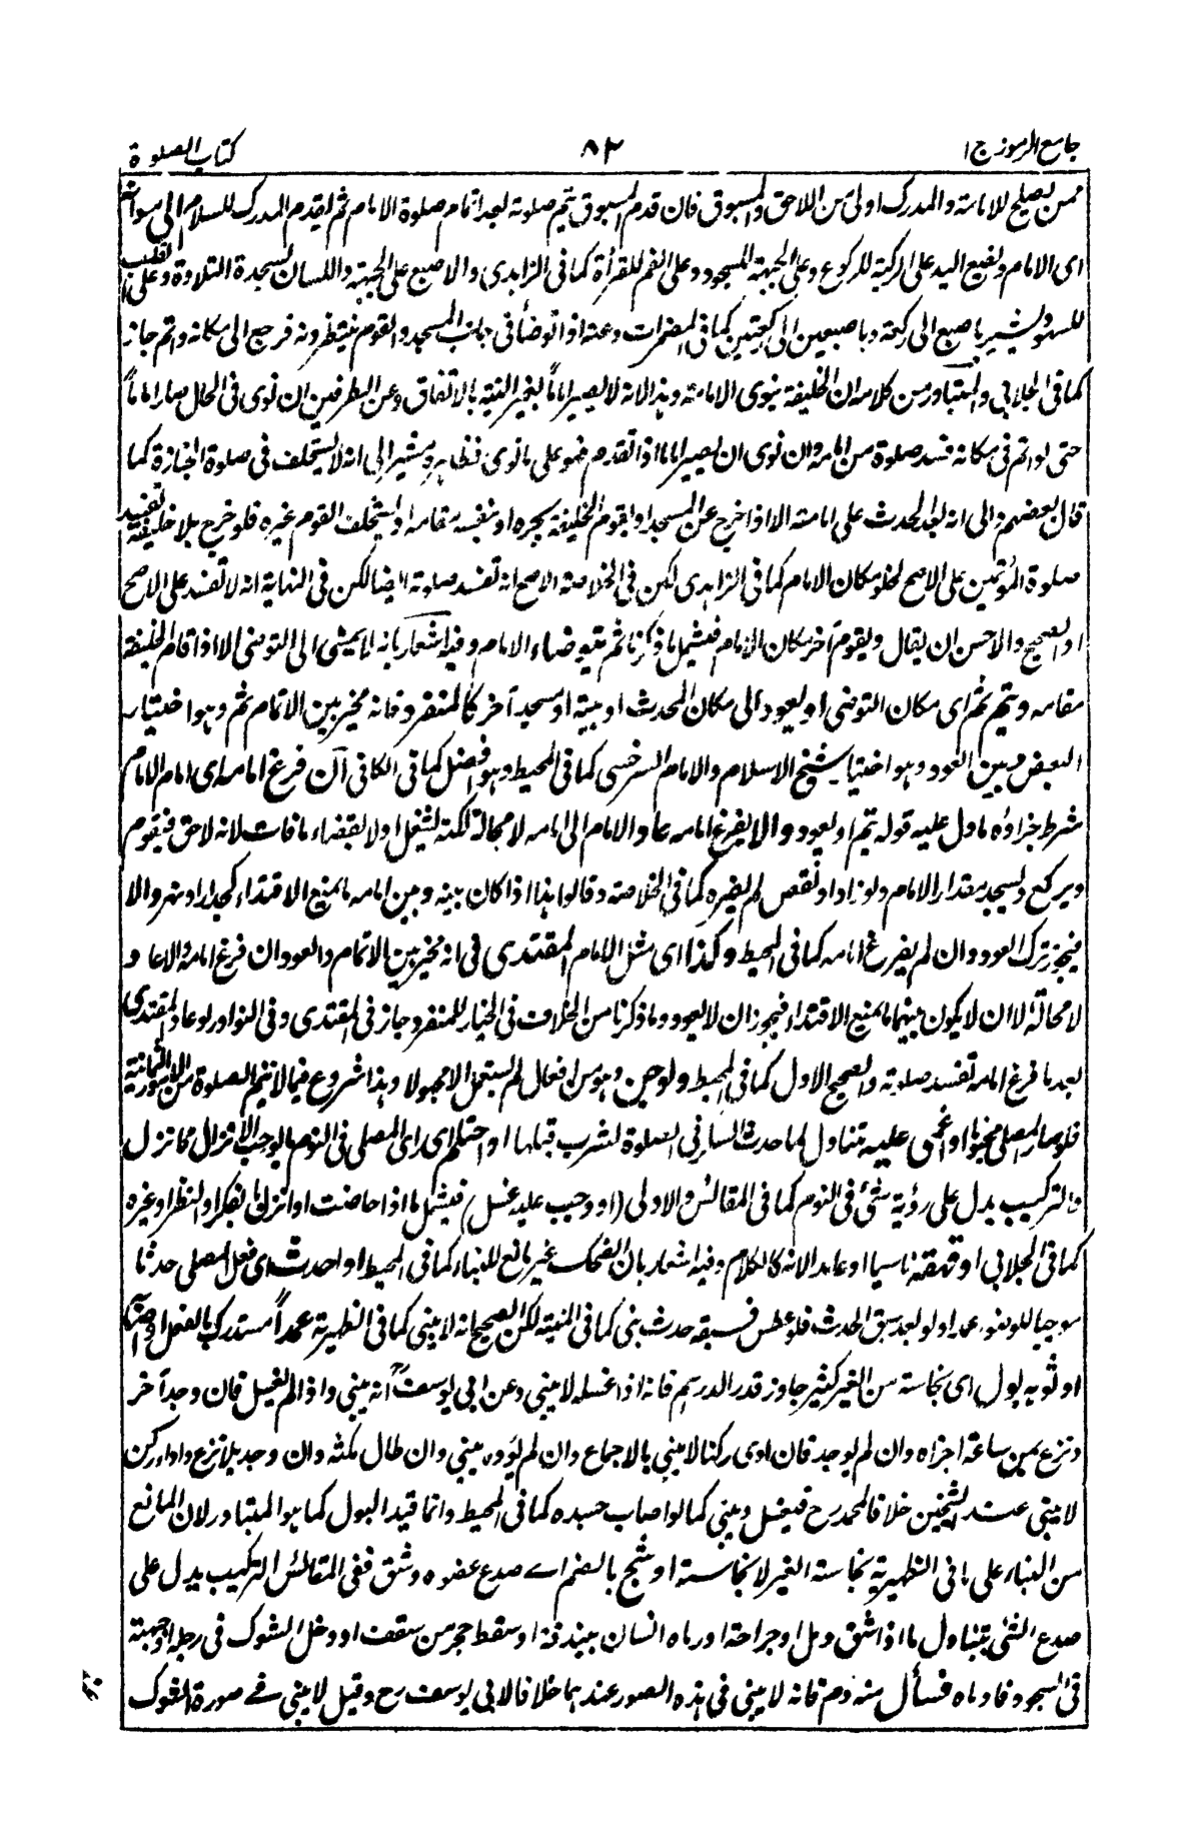 جامع الرموز ج١ ٨٢ كتاب الصلوة
ممن يصلح للامامة والمدرك اولى من اللاحق والمسبوق فان قدم المسبوق يتم صلوته بعد اتمام صلوة الامام ثم يقدم المدرك للسلام الى سواه
اى الامام ويضع اليد على الركبة للركوع وعلى الجبهة للسجود وعلى الفم للقرأة كما فى الزاهدى والاصبع على الجبهة واللسان لسجدة التلاوة وعلى القلب
للسهو ويشير باصبع الى ركعة وباصبعين الى ركعتين كما فى المضمرات وعنه اذا توضأ فى جانب المسجد والقوم ينتظرونه فرجع الى مكانه واتم جاز
كما فى الجلابى والمتبادر من كلامه ان الخليفة ينوى الامامة وهذا لانه لا يصير اماماً بغير النية بالاتفاق وعن الطرفين ان نوى فى الحال صار اماماً
حتى لو اتم فى مكانه فسد صلوة من امامه وان نوى ان يصير اماما اذا تقدم فهو على ما نوى فظاهره مشير الى انه لا يستخلف فى صلوة الجنازة كما
قال بعضهم والى انه بعد الحدث على امامته الا اذا خرج عن المسجد او يقوم الخليفة بجره او بنفسه مقامه او يستخلف القوم غيره فلو خرج بلا خليفة تفسد
صلوة المؤتمين على الاصح لخلو مكان الامام كما فى الزاهدى لكن فى الخلاصة الاصح انه تفسد صلوته ايضا لكن فى النهاية انه لا تفسد على الاصح
او الصحيح والاحسن ان يقال ويقوم آخر مكان الامام فيشمل ما ذكرنا ثم يتوضأ الامام وفيه اشعار بانه لا يمشى الى التوضى الا اذا قام الخليفة
مقامه ويتم ثم اى مكان التوضى او يعود الى مكان الحدث او بيته او مسجد آخر كالمنفرد فانه مخير بين الاتمام ثم وهو اختيار
البعض وبين العود وهو اختيار شيخ الاسلام والامام السرخسى كما فى المحيط وهو افضل كما فى الكافى ان فرغ امامه اى امام الامام
شرط جزاؤه ما دل عليه قوله يتم او يعود والا يفرغ امامه عاد الامام الى امامه لا محالة لكنه لشغل اولا بقضاء ما فات لانه لاحق فيقوم
ويركع ويسجد مقدار الامام ولو زاد او نقص لم يضره كما فى الخلاصة وقالوا هذا اذا كان بينه وبين امامه ما يمنع الاقتداء كجدار او نهر والا
فيجوز ترك العود وان لم يفرغ امامه كما فى المحيط وكذا اى مثل الامام المقتدى فى انه مخير بين الاتمام والعود ان فرغ امامه والا عاد
لا محالة الا ان لا يكون بينهما ما يمنع الاقتداء فيجوز ان لا يعود وما ذكرنا من الخلاف فى الخيار للمنفرد جاز فى المقتدى وفى النوادر لو عاد المقتدى
بعد ما فرغ امامه تفسد صلوته والصحيح الاول كما فى المحيط ولو جن وهو من افعال لم يستعمل الا مجهولا وهذا شروع فيما لا يتم الصلوة من الامور الثمانية
فلو صار المصلى مجنونا او اغمى عليه تناول لما حدث السكر فى الصلوة لشرب قبلها او احتلم اى رأى المصلى فى النوم ما يوجب الانزال فانزل
والتركيب يدل على رؤية شئ فى النوم كما فى المقائس والاولى (او وجب عليه غسل) فيشمل ما اذا حاضت او انزل بالفكر او النظر او غيره
كما فى الجلابى او قهقه ناسيا او عامدا لانه كالكلام وفيه اشعار بان الضحك غير مانع للبناء كما فى المحيط او احدث اى فعل المصلى حدثا
موجبا للوضوء عمدا ولو بعد سبق الحدث فلو عطس فسبقه حدث بنى كما فى المنية لكن الصحيح انه لا يبنى كما فى الظهيرية عمداً مستدرك بالفعل او اصابه
او ثوبه بول اى نجاسة من الغير كثير جاوز قدر الدرهم فانه اذا غسله لا يبنى وعن ابى يوسف رح انه يبنى واذا لم يغسل فان وجد آخر
ونزع من ساعته اجزاه وان لم يوجد فان ادى ركنا لا يبنى بالاجماع وان لم يؤده يبنى وان طال مكثه وان وجد بلا نزع واداء ركن
لا يبنى عند الشيخين خلافا لمحمد رح فيغسل ويبنى كما لو اصاب جسده كما فى المحيط وانما قيد البول كما هو المتبادر لان المانع
من البناء على ما فى الظهيرية نجاسة الغير لا نجاسته او شج بالضم اے صدع عضوه وشق ففى المقائس التركيب يدل على
صدع الشئ يتناول ما اذا شق دمل او جراحة او رماه انسان ببندقة او سقط حجر من سقف او دخل الشوك فى رجله او جبهته
فى السجود فادماه فسأل منه دم فانه لا يبنى فى هذه الصور عندهما خلافا لابى يوسف رح وقيل لا يبنى فے صورة الشوك